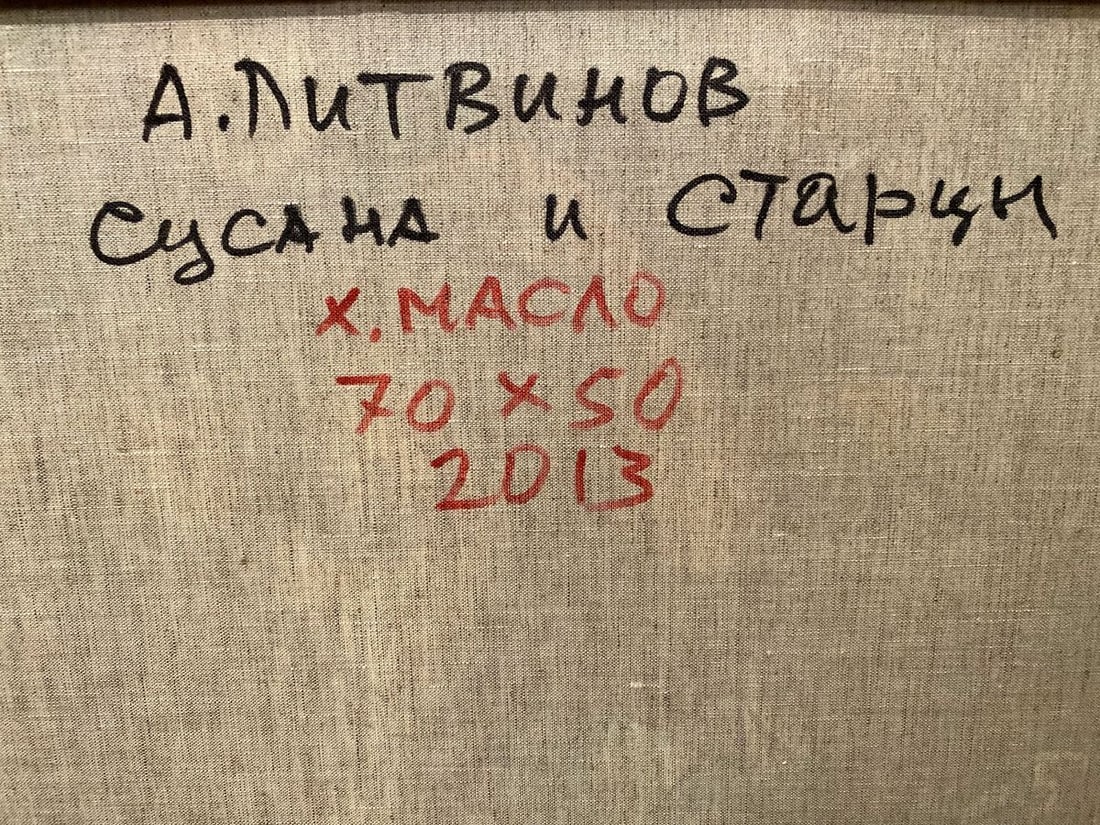 А. Литвинов
Сусана и Старцы
х. масло
70 х 50
2013